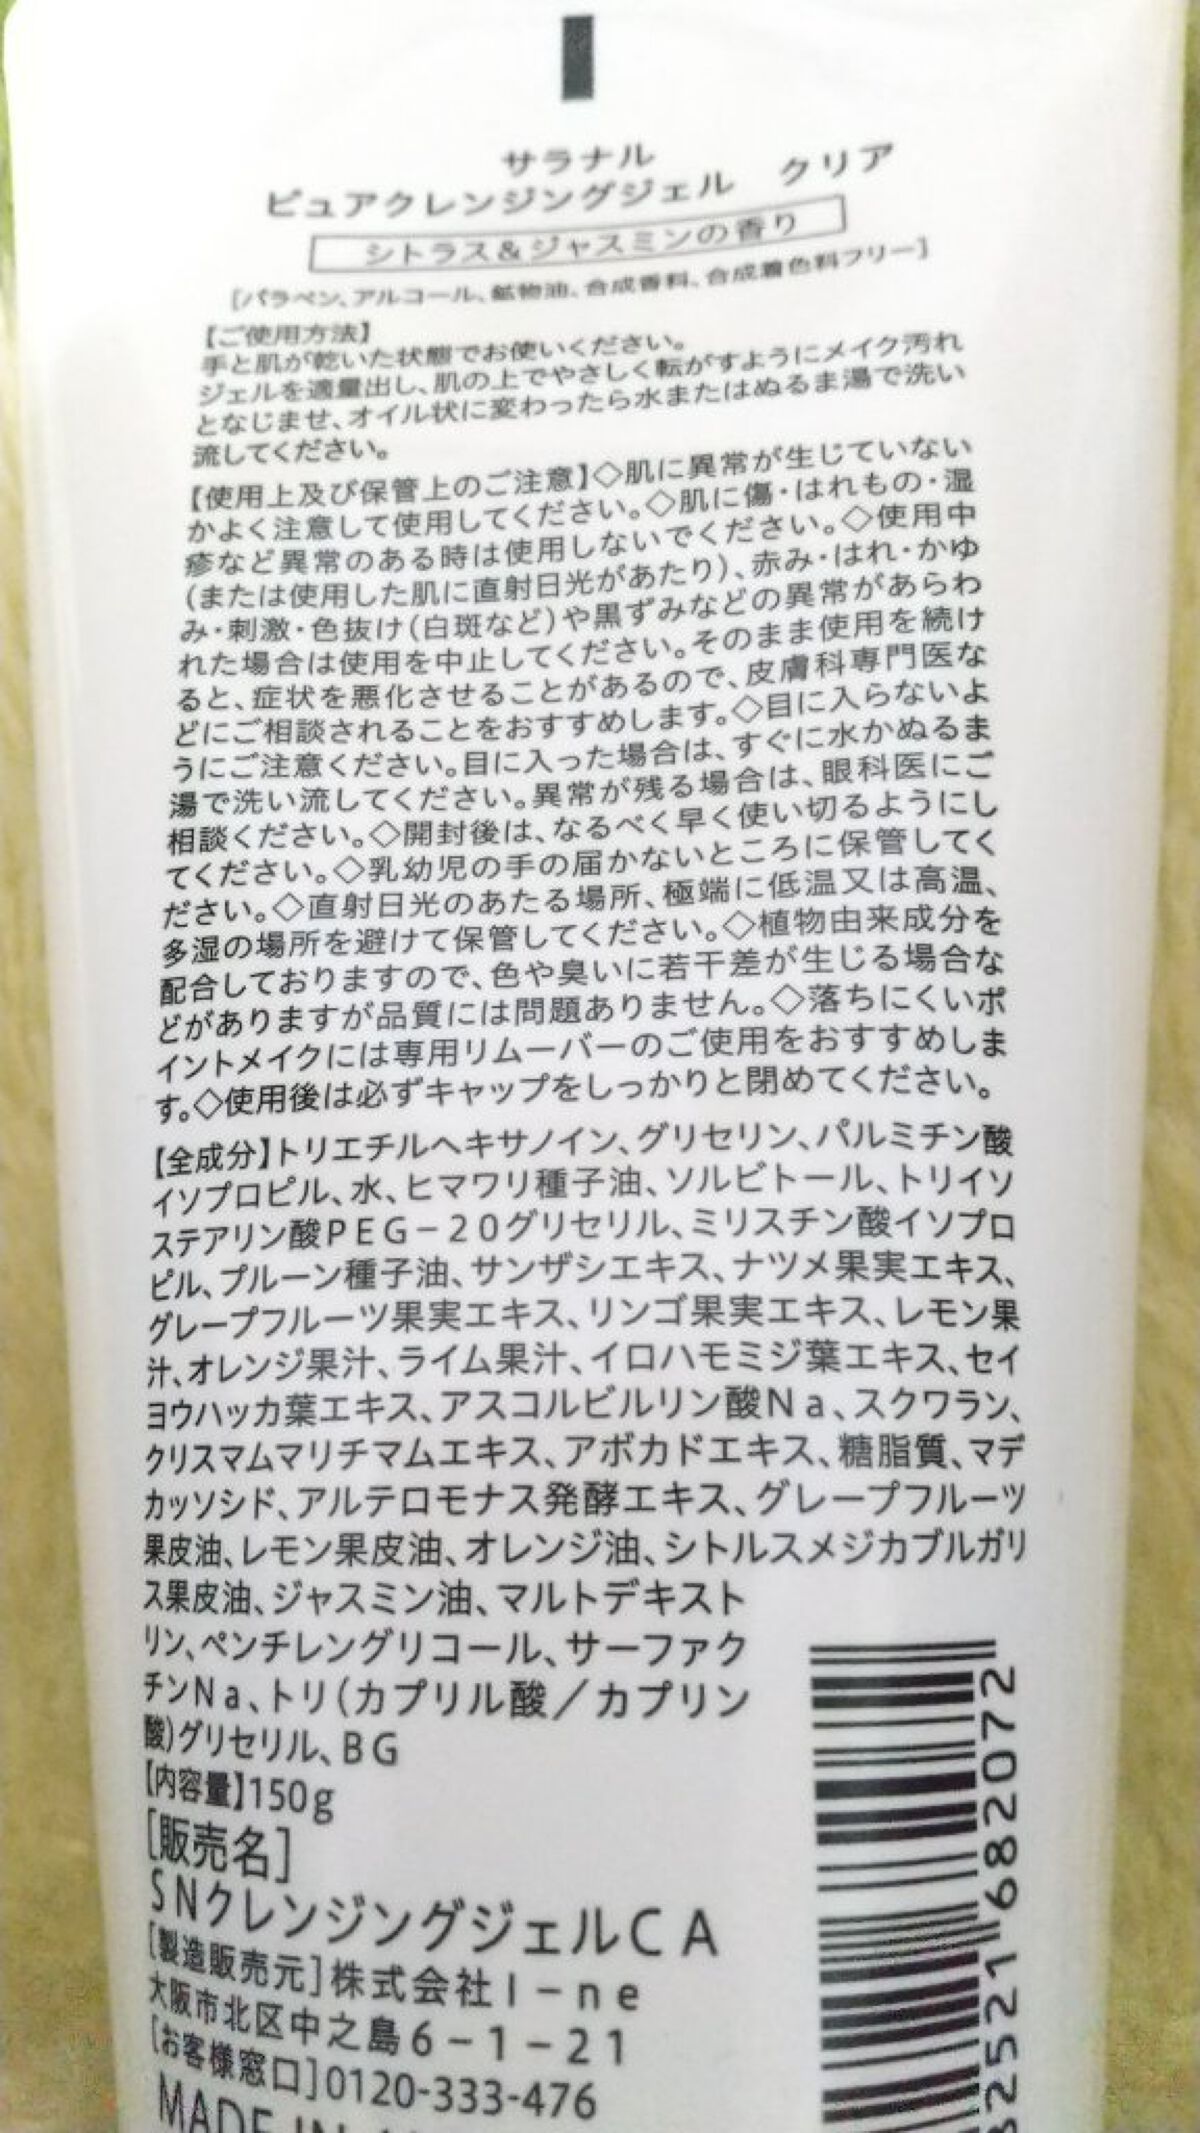 サラナル
ピュアクレンジングジェル　クリア
シトラス＆ジャスミンの香り
［パラベン、アルコール、鉱物油、合成香料、合成着色料フリー］
【ご使用方法】
手と肌が乾いた状態でお使いください。
ジェルを適量出し、肌の上でやさしく転がすようにメイク汚れ
となじませ、オイル状に変わったら水またはぬるま湯で洗い
流してください。
【使用上及び保管上のご注意】◇肌に異常が生じていない
かよく注意して使用してください。◇肌に傷・はれもの・湿
疹など異常のある時は使用しないでください。◇使用中
（または使用した肌に直射日光があたり）、赤み・はれ・かゆ
み・刺激・色抜け（白斑など）や黒ずみなどの異常があらわ
れた場合は使用を中止してください。そのまま使用を続け
ると、症状を悪化させることがあるので、皮膚科専門医な
どにご相談されることをおすすめします。◇目に入らないよ
うにご注意ください。目に入った場合は、すぐに水かぬるま
湯で洗い流してください。異常が残る場合は、眼科医にご
相談ください。◇開封後は、なるべく早く使い切るようにし
てください。◇乳幼児の手の届かないところに保管してく
ださい。◇直射日光のあたる場所、極端に低温又は高温、
多湿の場所を避けて保管してください。◇植物由来成分を
配合しておりますので、色や臭いに若干差が生じる場合な
どがありますが品質には問題ありません。◇落ちにくいポ
イントメイクには専用リムーバーのご使用をおすすめしま
す。◇使用後は必ずキャップをしっかりと閉めてください。
【全成分】トリエチルヘキサノイン、グリセリン、パルミチン酸
イソプロピル、水、ヒマワリ種子油、ソルビトール、トリイソ
ステアリン酸ＰＥＧ－２０グリセリル、ミリスチン酸イソプロ
ピル、プルーン種子油、サンザシエキス、ナツメ果実エキス、
グレープフルーツ果実エキス、リンゴ果実エキス、レモン果
汁、オレンジ果汁、ライム果汁、イロハモミジ葉エキス、セイ
ヨウハッカ葉エキス、アスコルビルリン酸Ｎａ、スクワラン、
クリスマムマリチマムエキス、アボカドエキス、糖脂質、マデ
カッソシド、アルテロモナス発酵エキス、グレープフルーツ
果皮油、レモン果皮油、オレンジ油、シトルスメジカブルガリ
ス果皮油、ジャスミン油、マルトデキスト
リン、ペンチレングリコール、サーファク
チンＮａ、トリ（カプリル酸／カプリン
酸）グリセリル、ＢＧ
【内容量】150g
［販売名］
ＳＮクレンジングジェルＣＡ
［製造販売元］株式会社Ｉ－ｎｅ
大阪市北区中之島６－１－２１
［お客様窓口］0120-333-476
MADE IN
32521 682072